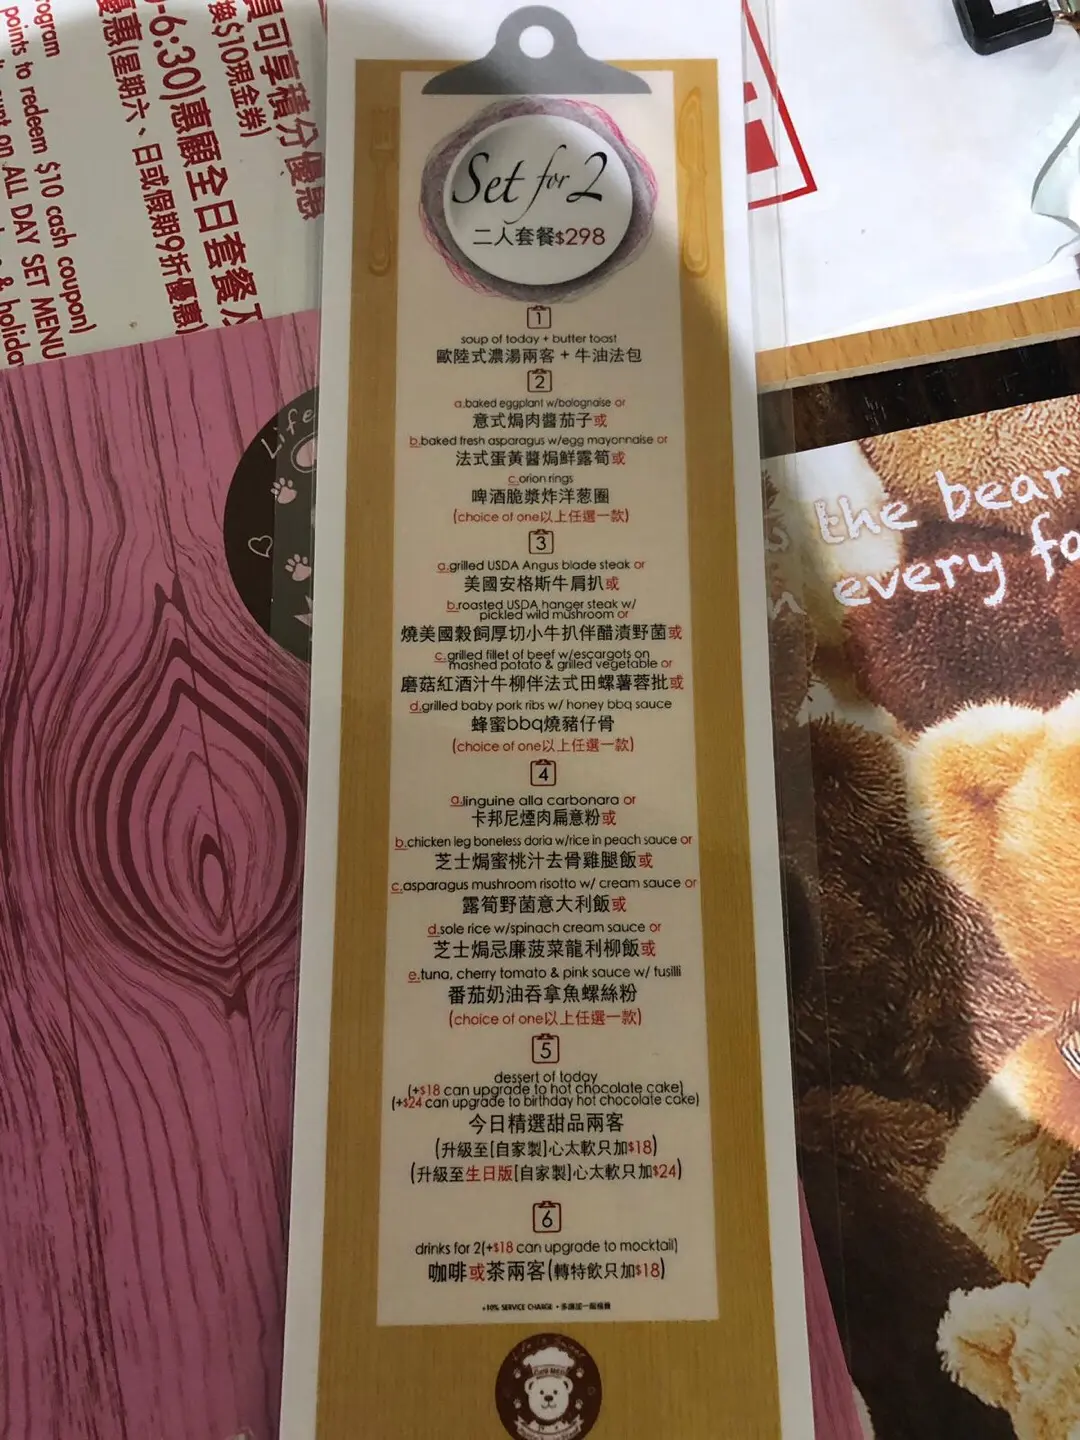 rogram
points to redeem $10 cash coupon)
ALL DAY SET MENU
& holida
可享積分優惠
換$10現金券)
-6:30)惠顧全日套餐
優惠(星期六、日或假期9折優惠)
Set for 2
二人套餐$298
1
soup of today + butter toast
歐陸式濃湯兩客 + 牛油法包
2
a.baked eggplant w/bolognaise or
意式焗肉醬茄子或
b.baked fresh asparagus w/egg mayonnaise or
法式蛋黃醬焗鮮露筍或
c.orion rings
啤酒脆漿炸洋葱圈
(choice of one以上任選一款)
3
a.grilled USDA Angus blade steak or
美國安格斯牛肩扒或
b.roasted USDA hanger steak w/
pickled wild mushroom or
燒美國穀飼厚切小牛扒伴醋漬野菌或
c.grilled fillet of beef w/escargots on
mashed potato & grilled vegetable or
磨菇紅酒汁牛柳伴法式田螺薯蓉批或
d.grilled baby pork ribs w/ honey bbq sauce
蜂蜜bbq燒豬仔骨
(choice of one以上任選一款)
4
a.linguine alla carbonara or
卡邦尼煙肉扁意粉或
b.chicken leg boneless doria w/rice in peach sauce or
芝士焗蜜桃汁去骨雞腿飯或
c.asparagus mushroom risotto w/ cream sauce or
露筍野菌意大利飯或
d.sole rice w/spinach cream sauce or
芝士焗忌廉菠菜龍利柳飯或
e.tuna, cherry tomato & pink sauce w/ fusilli
番茄奶油吞拿魚螺絲粉
(choice of one以上任選一款)
5
dessert of today
(+$18 can upgrade to hot chocolate cake)
(+$24 can upgrade to birthday hot chocolate cake)
今日精選甜品兩客
(升級至[自家製]心太軟只加$18)
(升級至生日版[自家製]心太軟只加$24)
6
drinks for 2(+$18 can upgrade to mocktail)
咖啡或茶兩客(轉特飲只加$18)
+10% SERVICE CHARGE • 多謝加一服務費
Life
the bear
every fo